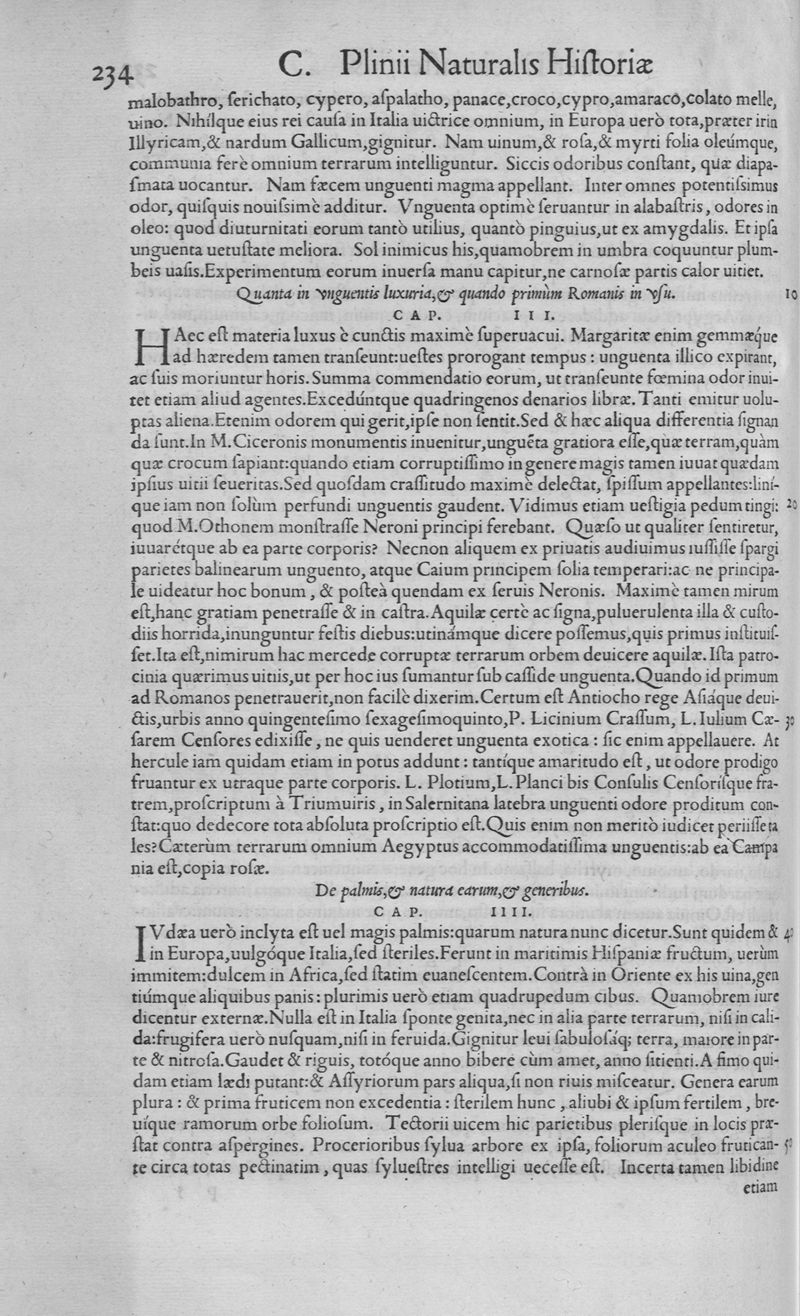 234 C. Plinii Naturalis Hiſtoriæ
malobathro, ſerichato, cypero, aſpalatho, panace,croco,cypro,amaracó,colato melle,
uino. Nihílque eius rei cauſa in Italia uictrice omnium, in Europa uerò tota,præter irin
Illyricam,& nardum Gallicum,gignitur. Nam uinum,& roſa,& myrti folia oleúmque,
communia ferè omnium terrarum intelliguntur. Siccis odoribus conſtant, quæ diapa-
ſmata uocantur. Nam fæcem unguenti magma appellant. Inter omnes potentiſsimus
odor, quiſquis nouiſsimè additur. Vnguenta optimè ſeruantur in alabaſtris, odores in
oleo: quod diuturnitati eorum tantò utilius, quantò pinguius,ut ex amygdalis. Et ipſa
unguenta uetuſtate meliora. Sol inimicus his,quamobrem in umbra coquuntur plum-
beis uaſis.Experimentum eorum inuerſa manu capitur,ne carnoſæ partis calor uitiet.
Quanta in vnguentis luxuria,& quando primùm Romanis in vſu. 10
CAP. III.
HAec eſt materia luxus è cunctis maximè ſuperuacui. Margaritæ enim gemmæq́ue
ad hæredem tamen tranſeunt:ueſtes prorogant tempus : unguenta illico expirant,
ac ſuis moriuntur horis.Summa commendatio eorum, ut tranſeunte fœmina odor inui-
tet etiam aliud agentes.Excedúntque quadringenos denarios libræ. Tanti emitur uolu-
ptas aliena.Etenim odorem qui gerit,ipſe non ſentit.Sed & hæc aliqua differentia ſignan
da ſunt.In M.Ciceronis monumentis inuenitur,unguẽta gratiora eſſe,quæ terram,quàm
quæ crocum ſapiant:quando etiam corruptiſſimo in genere magis tamen iuuat quædam
ipſius uitii ſeueritas.Sed quoſdam craſſitudo maximè delectat, ſpiſſum appellantes:liní-
que iam non ſolùm perfundi unguentis gaudent. Vidimus etiam ueſtigia pedum tingi: 20
quod M.Othonem monſtraſſe Neroni principi ferebant. Quæſo ut qualiter ſentiretur,
iuuarétque ab ea parte corporis? Necnon aliquem ex priuatis audiuimus iuſſiſſe ſpargi
parietes balinearum unguento, atque Caium principem ſolia temperari:ac ne principa-
le uideatur hoc bonum, & poſteà quendam ex ſeruis Neronis. Maximè tamen mirum
eſt,hanc gratiam penetraſſe & in caſtra.Aquilæ certè ac ſigna,puluerulenta illa & cuſto-
diis horrida,inunguntur feſtis diebus:utinámque dicere poſſemus,quis primus inſtituiſ-
ſet.Ita eſt,nimirum hac mercede corruptæ terrarum orbem deuicere aquilæ.Iſta patro-
cinia quærimus uitiis,ut per hoc ius ſumantur ſub caſſide unguenta.Quando id primum
ad Romanos penetrauerit,non facilè dixerim.Certum eſt Antiocho rege Aſiáque deui-
ctis,urbis anno quingenteſimo ſexageſimoquinto,P. Licinium Craſſum, L.Iulium Cæ- 30
ſarem Cenſores edixiſſe, ne quis uenderet unguenta exotica : ſic enim appellauere. At
hercule iam quidam etiam in potus addunt : tantíque amaritudo eſt, ut odore prodigo
fruantur ex utraque parte corporis. L. Plotium,L.Planci bis Conſulis Cenſoriſque fra-
trem,proſcriptum à Triumuiris, in Salernitana latebra unguenti odore proditum con-
ſtat:quo dedecore tota abſoluta proſcriptio eſt.Quis enim non meritò iudicet periiſſe ta
les?Cæterùm terrarum omnium Aegyptus accommodatiſſima unguentis:ab ea Campa
nia eſt,copia roſæ.
De palmis,& natura earum,& generibus.
CAP. IIII.
IVdæa uerò inclyta eſt uel magis palmis:quarum natura nunc dicetur.Sunt quidem & 40
in Europa,uulgóque Italia,ſed ſteriles.Ferunt in maritimis Hiſpaniæ fructum, uerùm
immitem:dulcem in Africa,ſed ſtatim euaneſcentem.Contrà in Oriente ex his uina,gen
tiúmque aliquibus panis : plurimis uerò etiam quadrupedum cibus. Quamobrem iure
dicentur externæ.Nulla eſt in Italia ſponte genita,nec in alia parte terrarum, niſi in cali-
da:frugifera uerò nuſquam,niſi in feruida.Gignitur leui ſabuloſáq; terra, maiore in par-
te & nitroſa.Gaudet & riguis, totóque anno bibere cùm amet, anno ſitienti.A fimo qui-
dam etiam lædi putant:& Aſſyriorum pars aliqua,ſi non riuis miſceatur. Genera earum
plura : & prima fruticem non excedentia : ſterilem hunc, aliubi & ipſum fertilem, bre-
uíque ramorum orbe folioſum. Tectorii uicem hic parietibus pleriſque in locis præ-
ſtat contra aſpergines. Procerioribus ſylua arbore ex ipſa, foliorum aculeo frutican- 50
te circa totas pectinatim, quas ſylueſtres intelligi ueceſſe eſt. Incerta tamen libidine
etiam